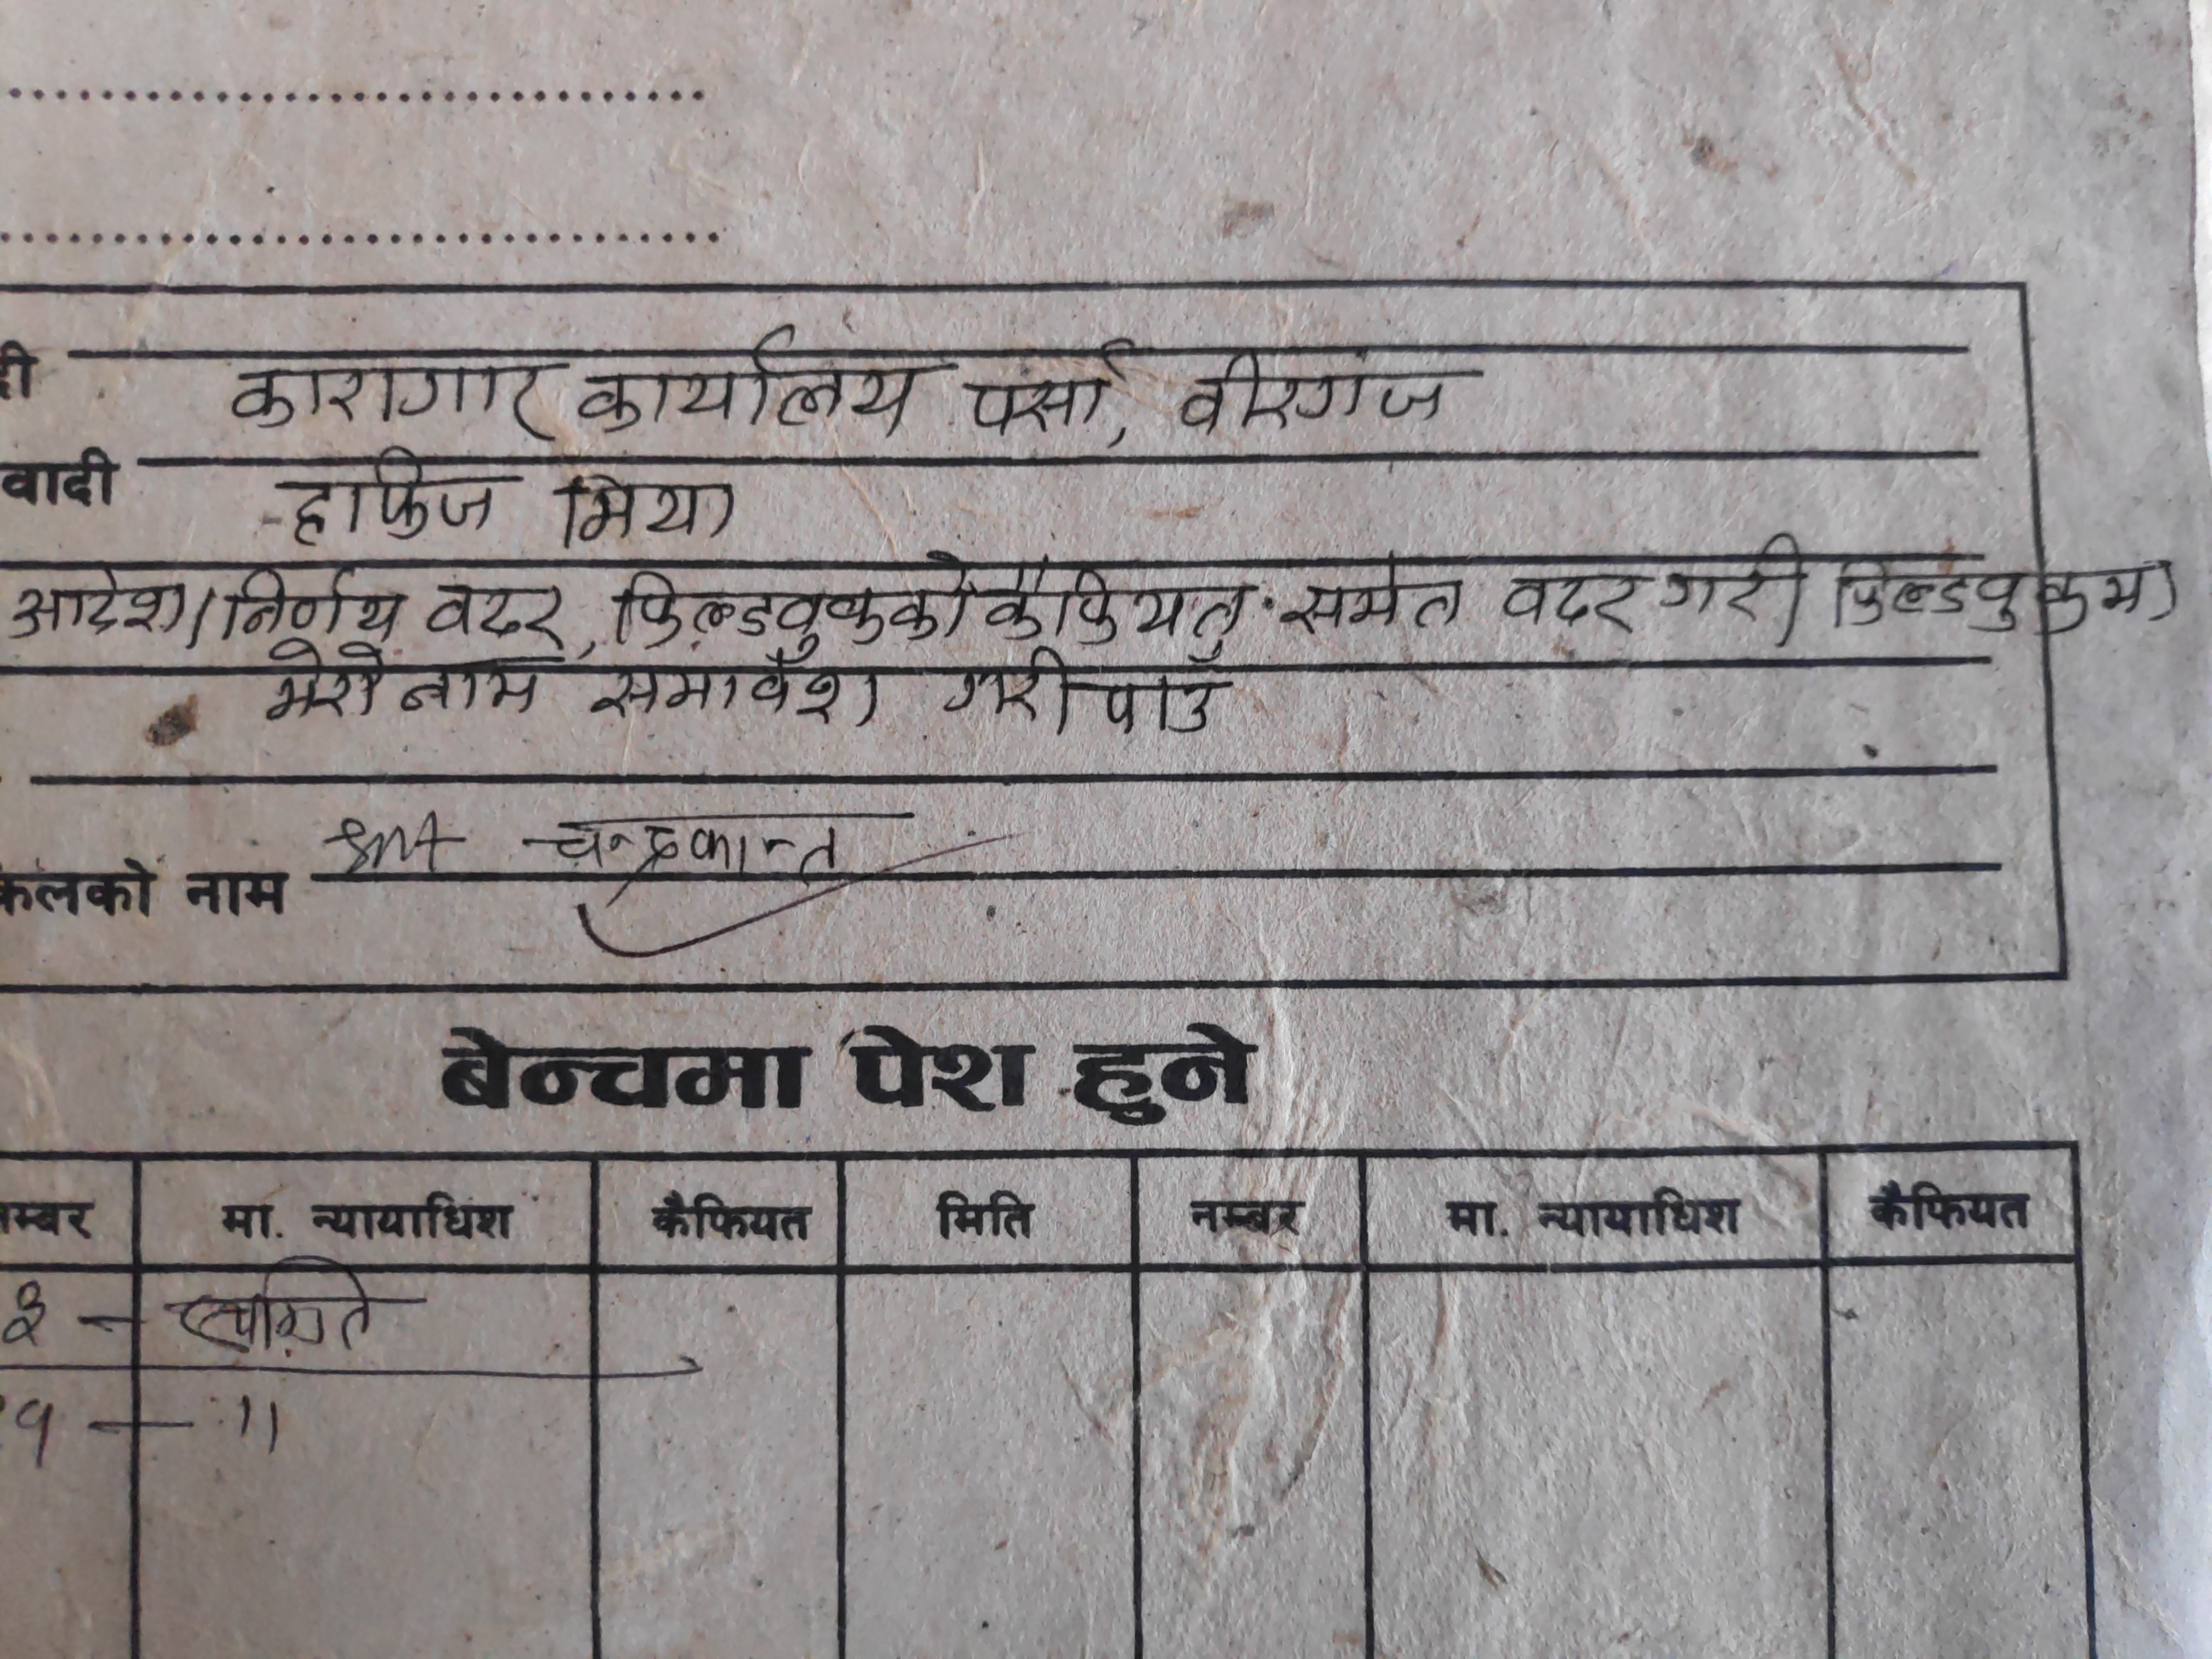 दी कारागार कार्यालय पर्सा, वीरगंज
वादी हाफिज मिया
आदेश/निर्णय वदर, फिल्डवुकको कैफियत समेत वदर गरी फिल्डवुकमा
मेरो नाम समावेश गरी पाउँ
चन्द्रकान्त
कलको नाम
बेन्चमा पेश हुने
म्बर मा. न्यायाधिश कैफियत मिति नम्बर मा. न्यायाधिश कैफियत
३ - स्थगित
१ - 11